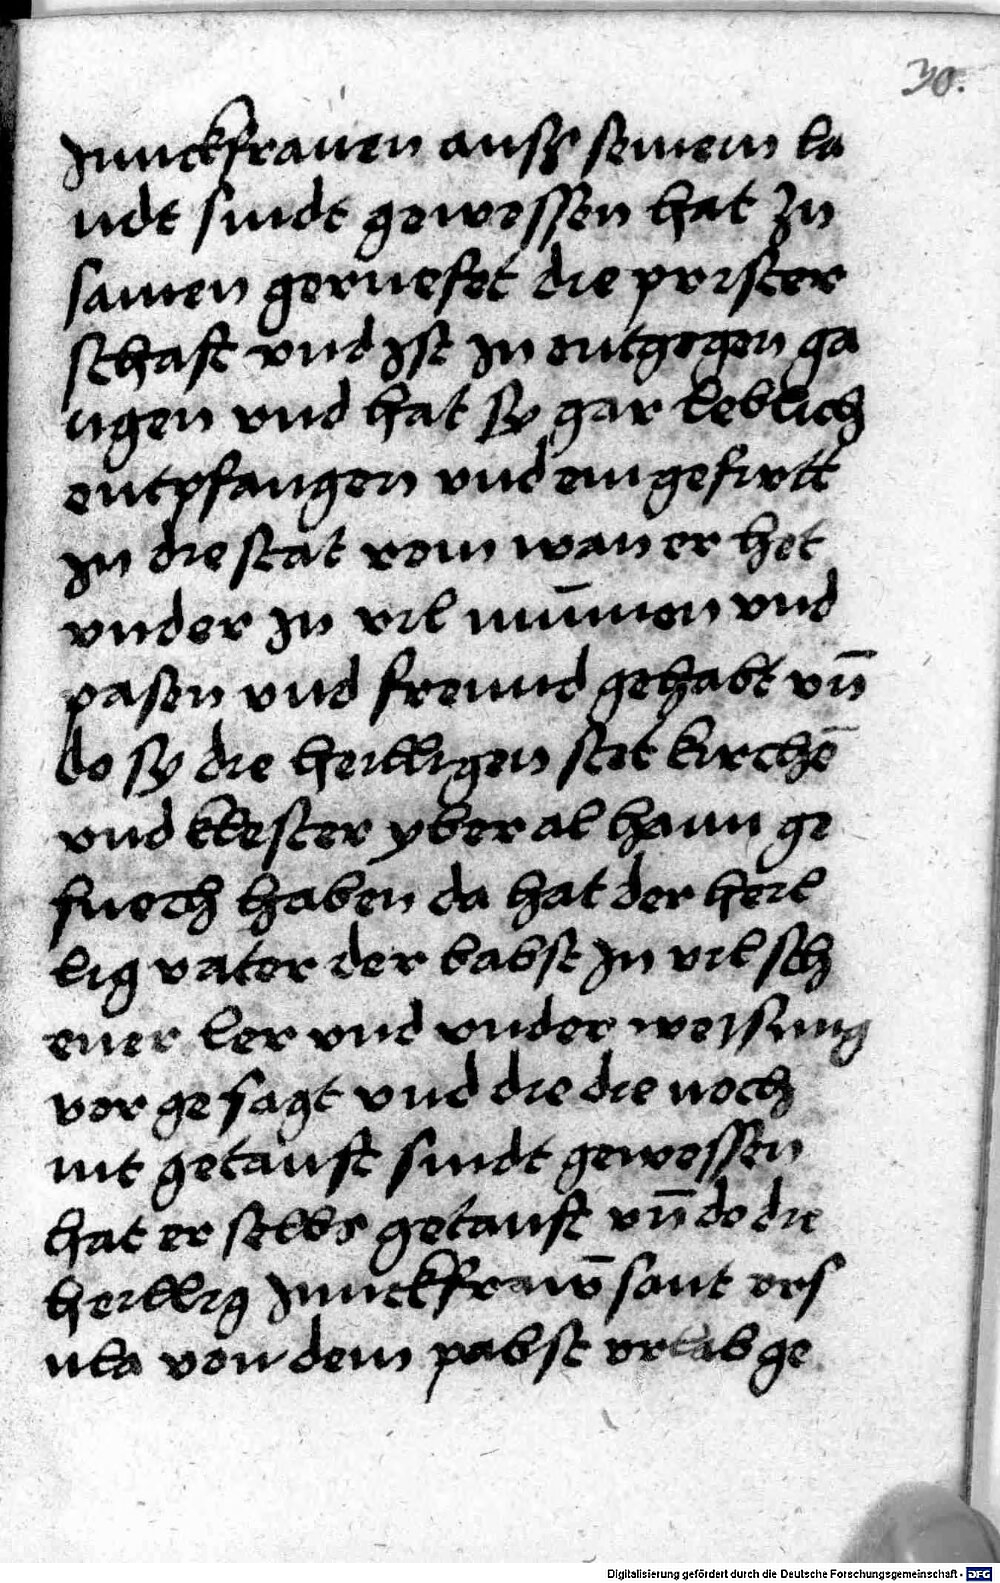 30.
Junckfrauen auß seinem la
ndt sindt gewessen hat zu
samen geruefet die prister
schaft vnd ist in entgegen ga
ngen vnd hat sy gar leblich
entpfangen vnd ein gefirtt
in die stat rom wan er het
vnder in vil mūmen vnd
pasen vnd freund gehabt vn̄
do sy die heilligen stet kirchē
vnd klester yberal haim ge
suech haben da hat der heil
lig vater der babst in vil sch
ener ler vnd vnder weissung
vor gesagt vnd die die noch
nit getauft sindt gewessen
hat er selbs getauft vn̄ do die
heillig Junckfraw̄ sant vrs
ula von dem pabst vrlab ge
Digitalisierung gefördert durch die Deutsche Forschungsgemeinschaft - DFG